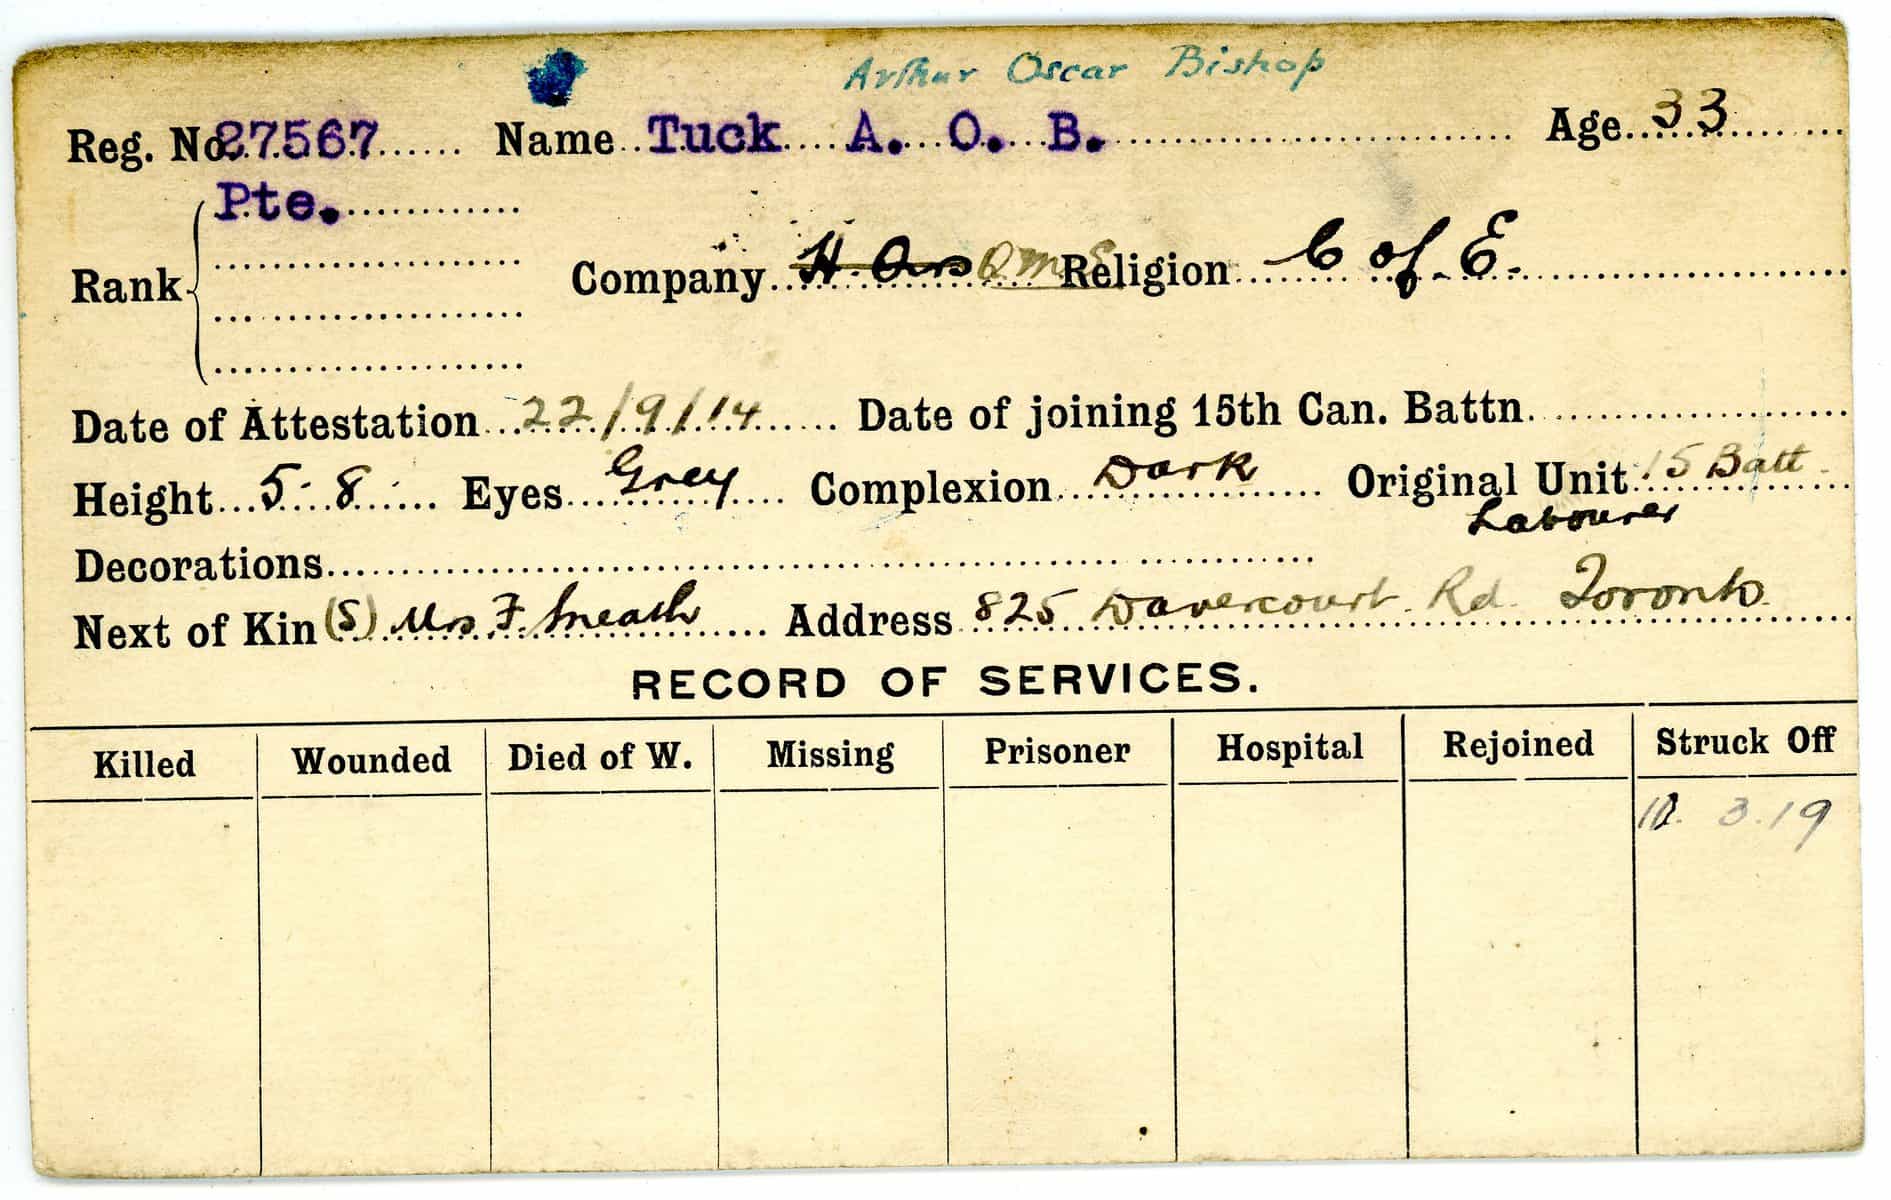 Arthur Oscar Bishop
Reg. No. 27567 Name Tuck A. O. B. Age 33
Pte.
Rank
Company H. Qrs Religion C of E.
Date of Attestation 22/9/14 Date of joining 15th Can. Battn.
Height 5.8 Eyes Grey Complexion Dark Original Unit 15 Batt.
Labourer
Decorations
Next of Kin (S) Mrs. F. Sneath Address 825 Davercourt. Rd. Toronto.
RECORD OF SERVICES.
Killed Wounded Died of W. Missing Prisoner Hospital Rejoined Struck Off
3.19